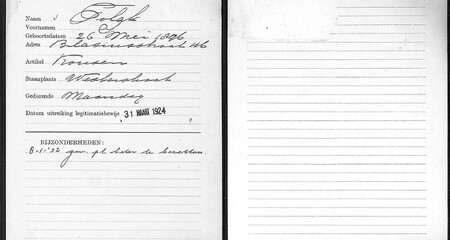 Naam √ Polgk
Voornamen
Geboortedatum 26 Mei 1896
Adres Blasiusstraat 116
Artikel Kousen
Staanplaats Westerstraat
Gedurende Maandag
Datum uitreiking legitimatiebewijs 31 MAART 1924
BIJZONDERHEDEN:
8-1-'32 gew. pl. beter te bezetten